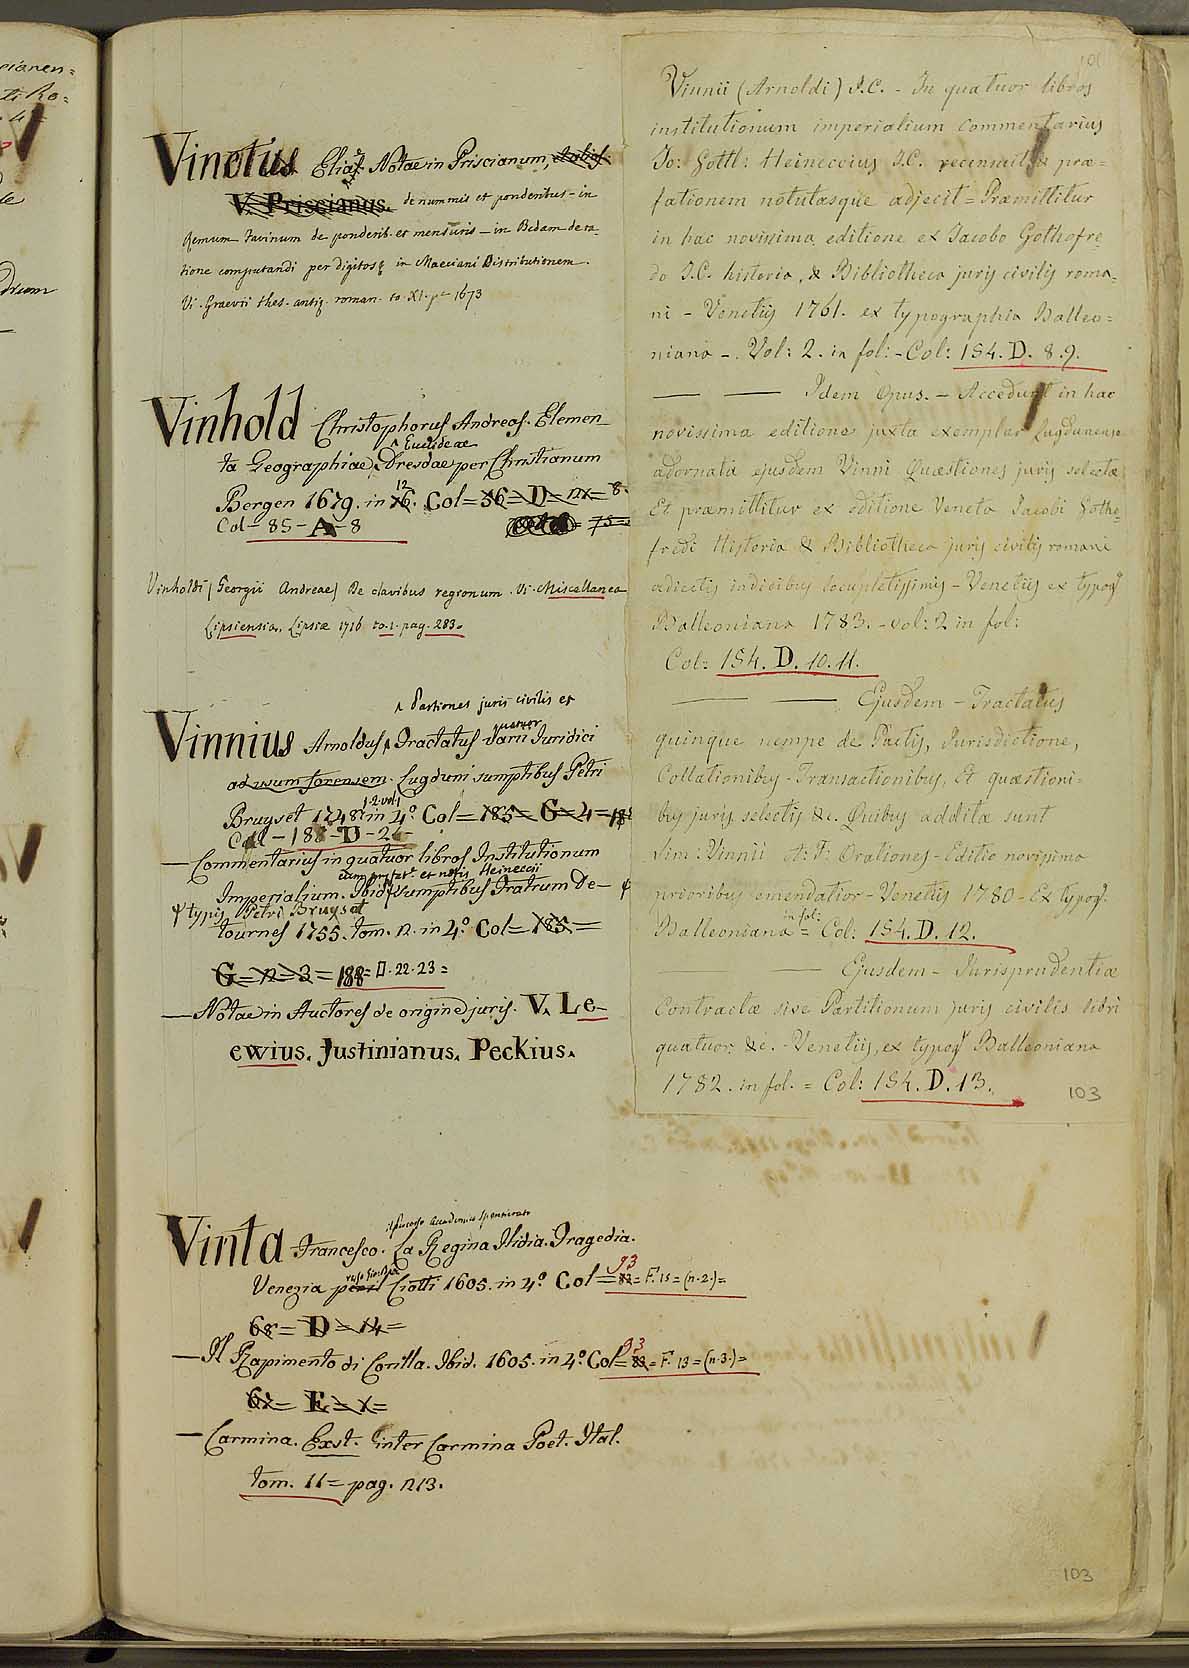 Vinetus Elias. Notae in Priscianum, et aliis.
V. Priscianus. de nummis et ponderibus - in
Remum Favinum de ponderib. et mensuris - in Bedam de ra-
tione computandi per digitos, in Maeciani Distributionem.
Vi. Graevii thes. antiq. roman. to. XI. p. 1673
Vinhold Christophorus Andreas. Elemen
^ Euclideae
ta Geographiae, Dresdae per Christianum
Bergen 1679. in 12 16. Col = 56 = D = 12 = 8.
Col - 85 - A - 8
Vinholdi (Georgii Andreae) De clavibus regionum. Vi. Miscellanea
Lipsiensia. Lipsiae 1716 to. 1. pag. 283.
^ Partiones juris civilis et
quatuor
Vinnius Arnoldus, Tractatus varii Juridici
ad usum forensem. Lugduni sumptibus Petri
1.2. vol.
Bruyset 1748. in 4.o Col = 185 = G = 4 = 188
Col - 188 - D - 24
— Commentarius in quatuor libros Institutionum
cum praefat. et notis Heineccii
Imperialium. Ibid. sumptibus Fratrum De-
typis Petri Bruyset
tournes 1755. tom. 2. in 4.o Col = 185 =
G = 2 = 3 = 188 = D. 22. 23 =
— Notae in Auctores de origine juris. V. Le-
ewius. Justinianus. Peckius.
il Fucoso Academico Spensierato
Vinta Francesco. La Regina Ilidia. Tragedia.
Venezia Ciotti 1605. in 4.o Col = 93 83 = F. 15 = (n. 2.) =
68 = D = 14 =
— Il Rapimento di Corilla. Ibid. 1605. in 4.o Col = 93 83 = F. 13 = (n. 3.) =
62 = E = 1 =
— Carmina. Exst. inter Carmina Poet. Ital.
tom. 11 = pag. 213.
Vinnii (Arnoldi) J.C. - In quatuor libros
institutionum imperialium commentarius
Jo: Gottl: Heineccius J.C. recensuit, & præ=
fationem notulasque adjecit = Præmittitur
in hac novissima editione ex Jacobo Gothofre-
do J.C. historia, & Bibliotheca juris civilis roma-
ni - Venetiis 1761. ex typographia Balleo=
niana - . Vol: 2. in fol: - Col: 154. D. 8. 9.
— — Idem Opus. - Accedunt in hac
novissima editione juxta exemplar Lugdunense
adornata ejusdem Vinni Quæstiones juris selectæ
Et præmittitur ex editione Veneta Jacobi Gotho=
fredi Historia & Bibliotheca juris civilis romani
adiectis indicibus locupletissimis - Venetiis ex typog.
Balleoniana 1783. - vol: 2 in fol:
Col: 154. D. 10. 11.
— — Ejusdem - Tractatus
quinque nempe de Pactis, Jurisdictione,
Collationibus, Transactionibus, Et quæstioni=
bus juris selectis &c. Quibus additæ sunt
Sim: Vinnii A: F: Orationes - Editio novissima
prioribus emendatior - Venetiis 1780 - Ex typog.
in fol:
Balleoniana = Col: 154. D. 12.
— Ejusdem - Jurisprudentiæ
Contractæ sive Partitionum juris civilis libri
quatuor &c. - Venetiis, ex typog. Balleoniana
1782. in fol. = Col: 154. D. 13.
103
103